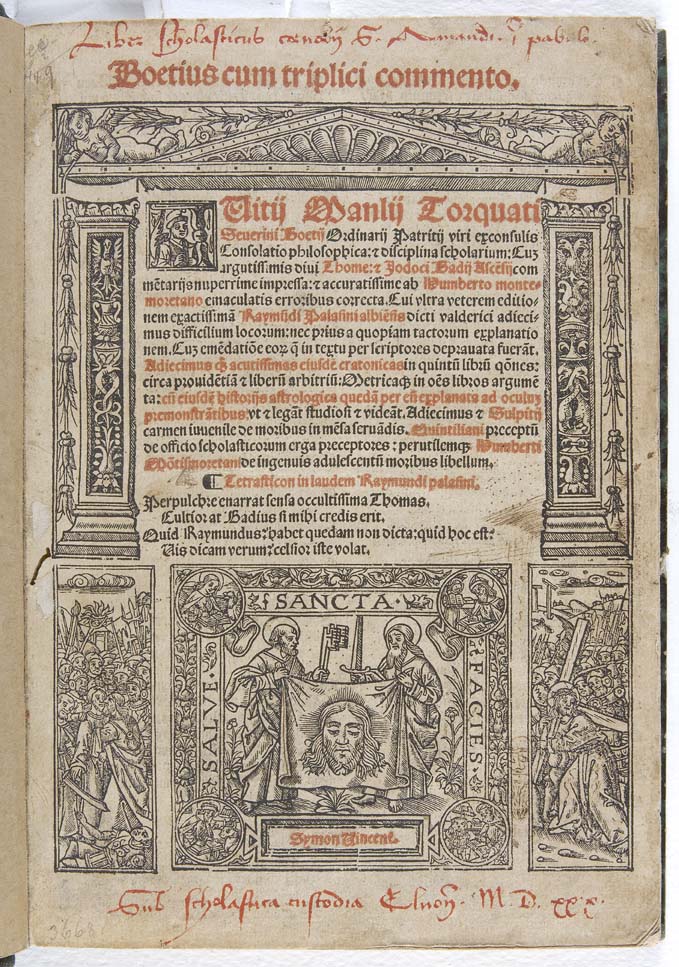 Liber scholasticus cœnobij S. Amandi. ī pab. lo.
Boetius cum triplici commento.
Uitij Manlij Torquati
Seuerini Boetij Ordinarij Patritij viri exconsulis
Consolatio philosophica: ⁊ disciplina scholarium: Cuz
argutissimis diui Thome: ⁊ Jodoci Badij Ascēsij com
mētarijs nuperrime impressa: ⁊ accuratissime ab Humberto monte-
moretano emaculatis erroribus correcta. Cui vltra veterem editio-
nem exactissimā Raymūdi Palasini albiēsis dicti valderici adieci-
mus difficilium locorum: nec prius a quopiam tactorum explanatio
nem. Cuz emēdatiōe eorz q̄ in textu per scriptores deprauata fuerāt.
Adiecimus qz acutissimas eiusdē cratonicas in quintū librū q̄ones:
circa prouidētiā ⁊ liberū arbitriū: Metricaqz in oēs libros argumē
ta: cū eiusdē historijs astrologica quedā per eū explanata ad oculuz
premonstrātibus: vt ⁊ legāt studiosi ⁊ videāt. Adiecimus ⁊ Sulpitij
carmen iuuenile de moribus in mēsa seruādis. Quintiliani preceptū
de officio scholasticorum erga preceptores: perutilemqz Humberti
Mōtismoretani de ingenuis adulescentū moribus libellum.
⸿ Tetrasticon in laudem Raymundi palasini.
Perpulchre enarrat sensa occultissima Thomas.
Cultior at Badius si mihi credis erit.
Quid Raymundus? habet quedam non dicta: quid hoc est?
Uis dicam verum? celsior iste volat.
SANCTA
SALVE
FACIES
Symon Uincent.
Sub scholastica custodia Elnoñ. M. D. xx.x.
3668